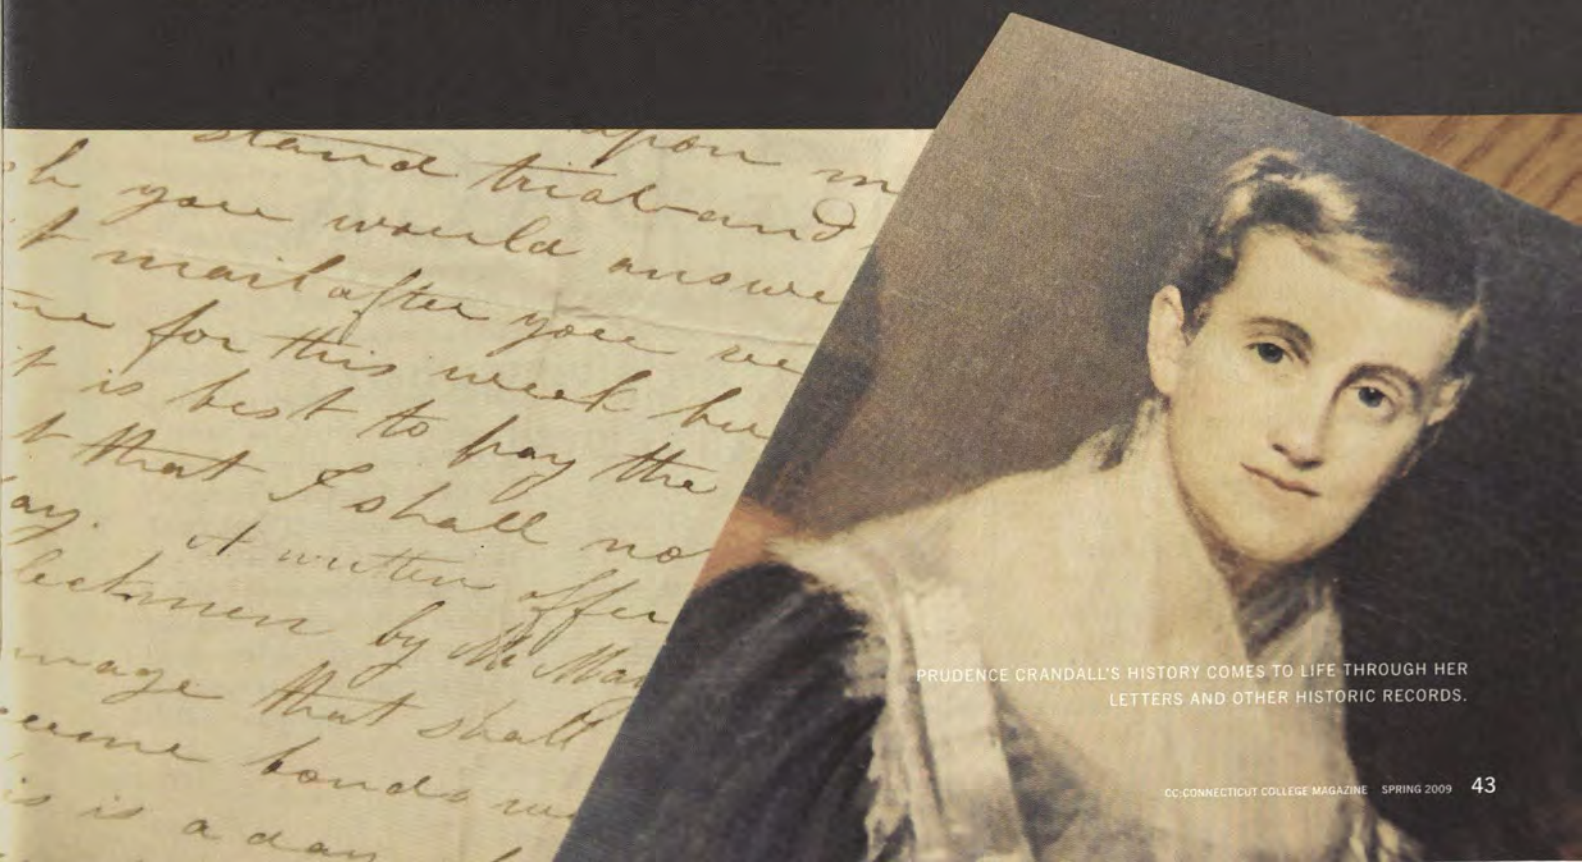 stand upon m
h you would trial and
t mail answe
me after you we
for this week bu
it is best to pay the
t that I shall no
ay. A written offer
lectmen by Mr May
mage that shall
bonds
is is a day
PRUDENCE CRANDALL'S HISTORY COMES TO LIFE THROUGH HER
LETTERS AND OTHER HISTORIC RECORDS.
CC:CONNECTICUT COLLEGE MAGAZINE SPRING 2009 43